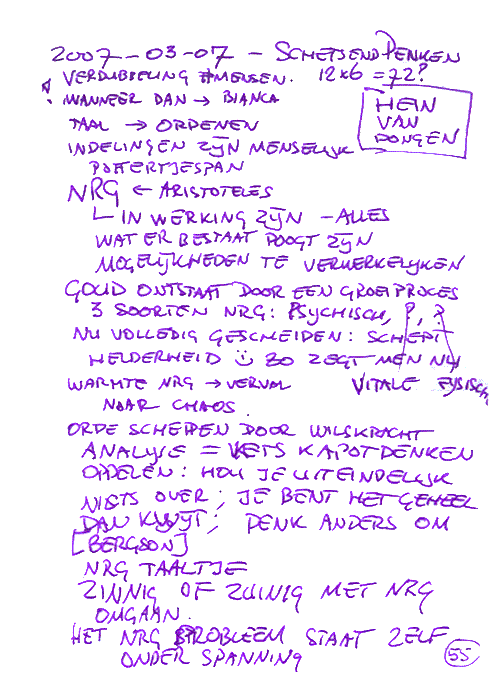 2007-03-07 - SCHETSENDDENKEN
VERDUBBELING #MENSEN. 12x6 = 72?
WANNEER DAN → BIANCA
HEIN
VAN
DONGEN
TAAL → ORDENEN
INDELINGEN ZIJN MENSELIJK
POTTERTJESPAN
NRG ← ARISTOTELES
IN WERKING ZIJN - ALLES
WAT ER BESTAAT POOGT ZIJN
MOGELIJKHEDEN TE VERWERKELIJKEN
GOUD ONTSTAAT DOOR EEN GROEIPROCES
3 SOORTEN NRG: PSYCHISCH, ?, ?
NU VOLLEDIG GESCHEIDEN: SCHEPT
HELDERHEID ZO ZEGT MEN NU
WARMTE NRG → VERVAL VITALE FYSISCH
NAAR CHAOS.
ORDE SCHEPPEN DOOR WILSKRACHT
ANALYSE = IETS KAPOTDENKEN
OPDELEN: HOU JE UITEINDELIJK
NIETS OVER; JE BENT HET GEHEEL
DAN KWIJT; DENK ANDERS OM
[BERGSON]
NRG TAALTJE
ZINNIG OF ZUINIG MET NRG
OMGAAN.
HET NRG PROBLEEM STAAT ZELF
ONDER SPANNING
55